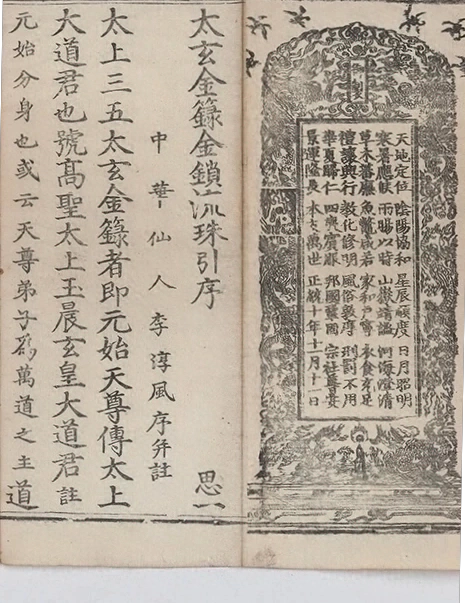 御製
天地定位 陰陽協和 星辰順度 日月昭明
寒暑應候 雨暘以時 山嶽靖謐 河海澄清
草木蕃廡 魚鱉咸若 家和戶寧 衣食充足
禮讓興行 教化修明 風俗敦厚 刑罰不用
華夏歸仁 四夷賓服 邦國鞏固 宗社尊安
景運隆長 本支萬世 正統十年十一月十一日
太玄金籙金鎖流珠引序 思一
中華仙人李淳風序并註
太上三五太玄金籙者即元始天尊傳太上
大道君也號髙聖太上玉晨玄皇大道君註
元始分身也或云天尊弟子爲萬道之主道